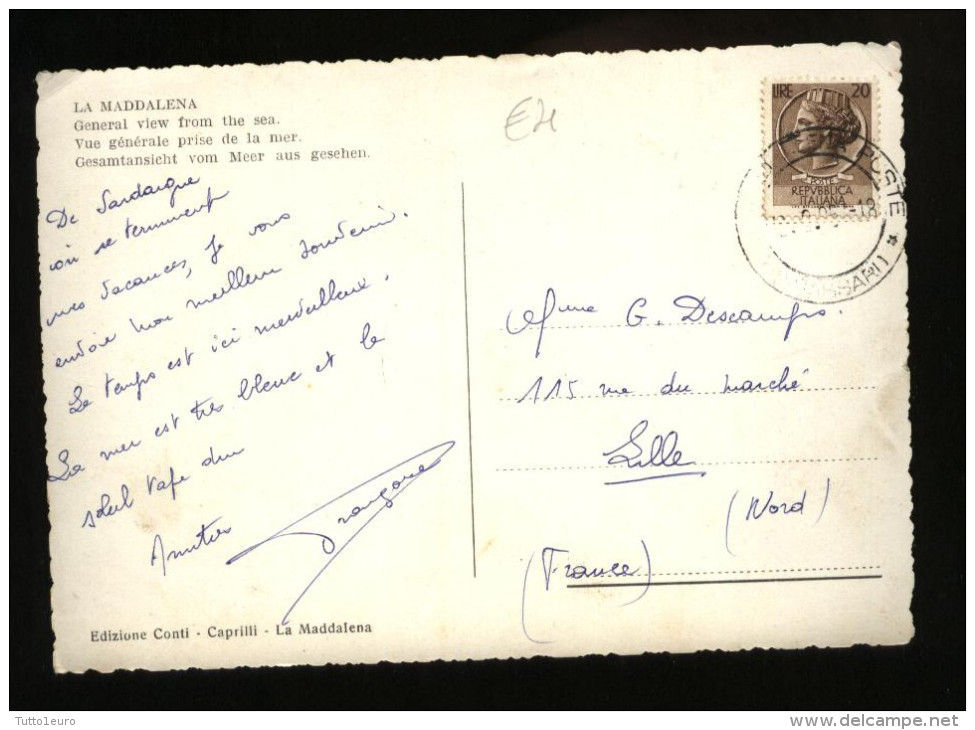 LA MADDALENA
General view from the sea.
Vue générale prise de la mer.
Gesamtansicht vom Meer aus gesehen.
De Sardaigne
où se terminent
mes vacances, je vous
envoie mon meilleur souvenir.
Le temps est ici merveilleux.
La mer est très bleue et le
soleil tape dur
Amitiés
Edizione Conti - Caprilli - La Maddalena
E4
LIRE 20
POSTE
REPVBBLICA
ITALIANA
POSTE *
(SASSARI)
Mme G. Descamps.
115 rue du marché
Lille
(Nord)
(France)
Tutto1euro
www.delcampe.net